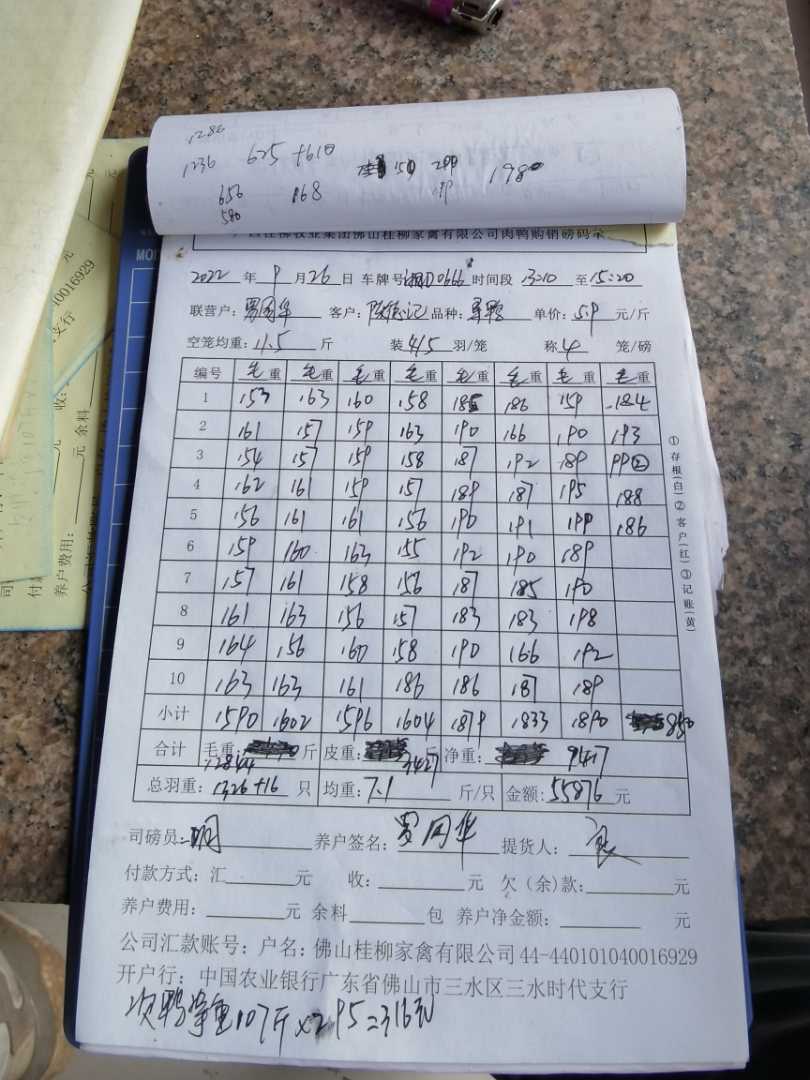 1286
1236 625 +610 150 200 1980
656 168
580
广西桂柳牧业集团佛山桂柳家禽有限公司肉鸭购销磅码录
2022 年 9 月 26 日 车牌号 D0666 时间段 13:10 至 15:20
联营户: 罗同华 客户: 陈德记 品种: 单价: 5.9 元/斤
空笼均重: 11.5 斤 装 4/5 羽/笼 称 4 笼/磅
编号 毛重 毛重 毛重 毛重 毛重 毛重 毛重 毛重
1 153 163 160 158 185 186 159 184
2 161 157 159 163 190 166 190 193
3 154 157 159 158 187 192 189 99②
4 162 161 159 157 189 187 195 188
5 156 161 161 156 190 191 199 186
6 159 160 163 155 192 190 189
7 157 161 158 156 187 185 190
8 161 163 156 157 183 183 198
9 164 156 160 158 190 166 192
10 163 163 161 186 186 187 189
小计 1590 1602 1596 1604 1879 1833 1890 850
合计 毛重: 12844 斤 皮重: 3427 斤 净重: 9417
总羽重: 1326+16 只 均重: 7.1 斤/只 金额: 55876 元
司磅员: 明 养户签名: 罗同华 提货人: 良
付款方式: 汇 元 收: 元 欠(余)款: 元
养户费用: 元 余料 包 养户净金额: 元
公司汇款账号: 户名: 佛山桂柳家禽有限公司 44-440101040016929
开户行: 中国农业银行广东省佛山市三水区三水时代支行
次鸭 重107斤×2.95=316元
①存根(白)②客户(红)③记账(黄)
40016929
支行